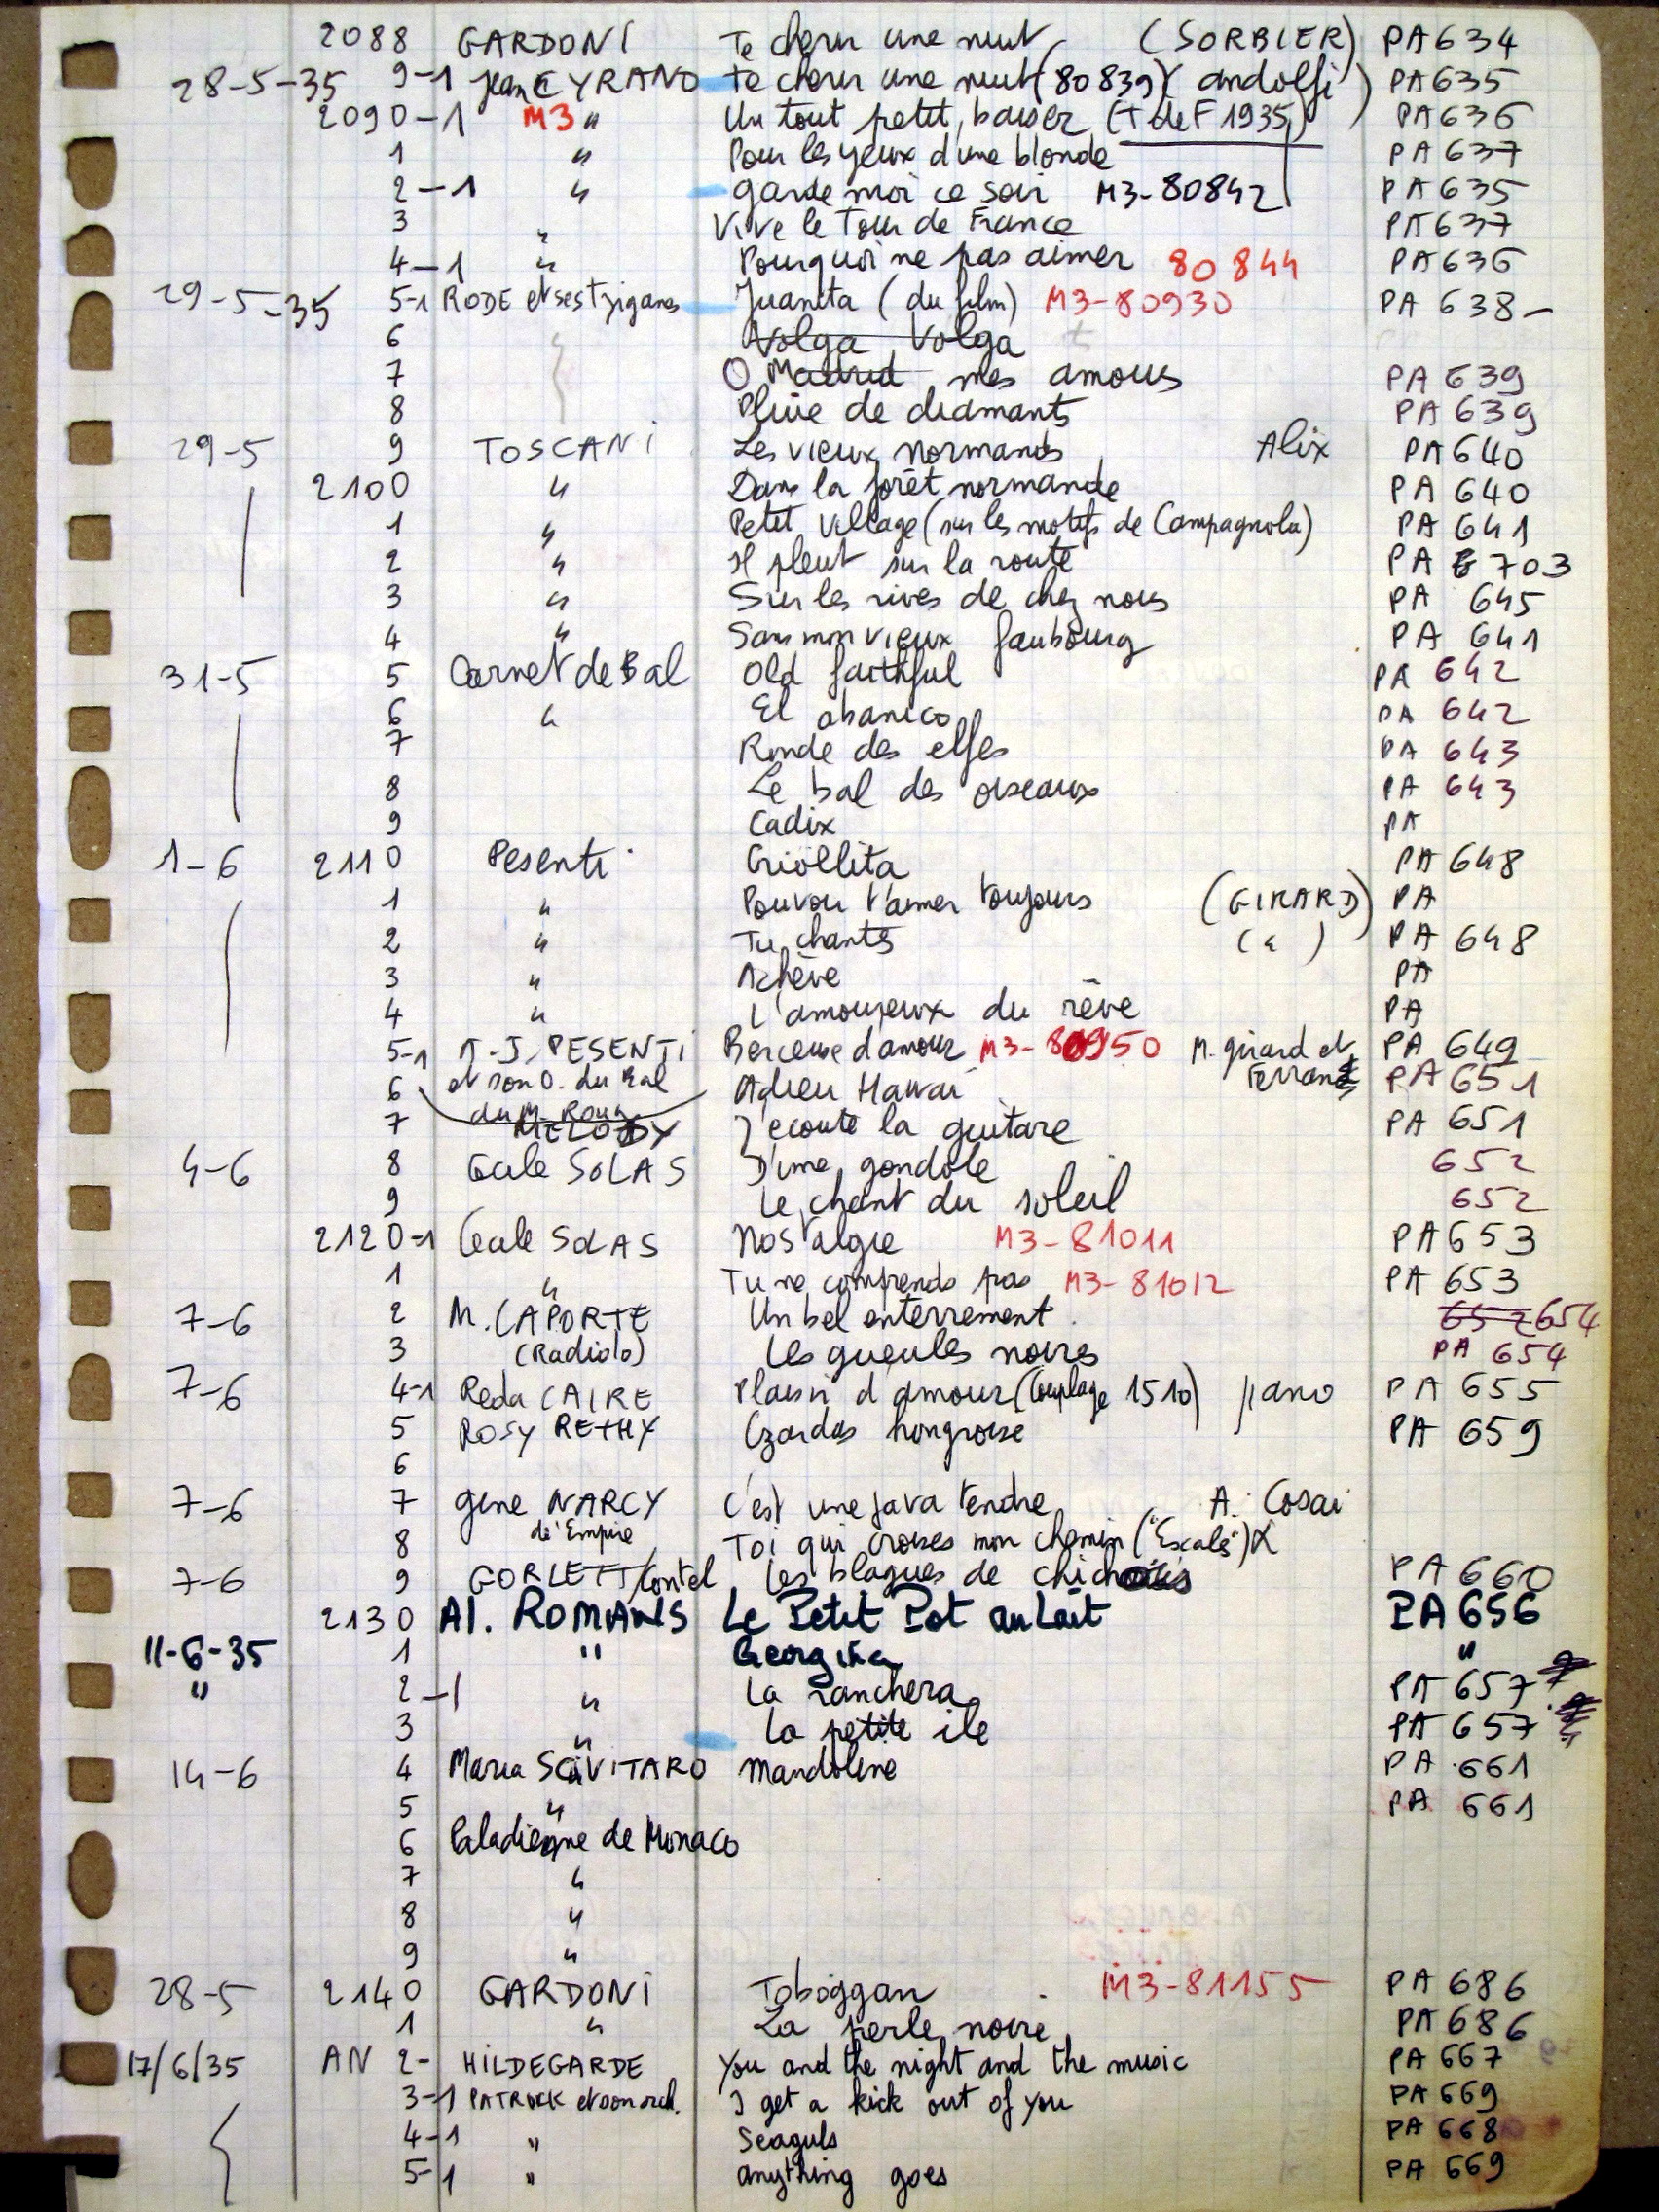 2088 GARDONI Te cherir une nuit (SORBIER) PA634
28-5-35 9-1 Jean CYRANO Te cherir une nuit (80839) (andolfi) PA635
2090-1 M3 " Un tout petit baiser (T de F 1935) PA636
1 " Pour les yeux d'une blonde PA 637
2-1 " garde moi ce soir M3-80842 PA635
3 " Vive le Tour de France PA637
4-1 " Pourquoi ne pas aimer 80844 PA636
29-5-35 5-1 RODE et ses Tziganes Juanita (du film) M3-80930 PA 638-
6 Volga Volga
7 O Madrid mes amours PA 639
8 Pluie de diamants PA 639
29-5 9 TOSCANI Les vieux normands Alix PA640
2100 " Dans la forêt normande PA 640
1 " Petit village (sur les motifs de Campagnola) PA 641
2 " Il pleut sur la route PA 703
3 " Sur les rives de chez nous PA 645
4 " Sans mon vieux faubourg PA 641
31-5 5 Carnet de Bal Old faithful PA 642
6 " El abanico PA 642
7 Ronde des elfes PA 643
8 Le bal des oiseaux PA 643
9 Cadix PA
1-6 2110 Pesenti Criollita PA 648
1 " Pouvoir t'aimer toujours (GIRARD) PA
2 " Tu chantes ( " ) PA 648
3 " Achève PA
4 " L'amoureux du rêve PA
5-1 R-J. PESENTI Berceuse d'amour M3-80950 M. Girard et PA 649
6 et son O. du Bal Adieu Hawaï PA 651
du M. Roug
7 MELODY J'ecoute la guitare PA 651
4-6 8 Cecile SOLAS D'une gondole 652
9 Le chant du soleil 652
2120-1 Cecile SOLAS Nostalgie M3-81011 PA653
1 " Tu ne comprends pas M3-81012 PA 653
7-6 2 M. LAPORTE Un bel enterrement 652 654
3 (Radiolo) Les gueules noires PA 654
7-6 4-1 Reda CAIRE Plaisir d'amour (Couplage 1510) piano PA 655
5 ROSY RETHY Czardas hongroise PA 659
6
7-6 7 gine NARCY C'est une java tendre A. Cosai
de l'Empire
8 Toi qui croises mon chemin ("Escale")
7-6 9 GORLETT/Contel Les blagues de PA 660
2130 Al. ROMANS Le Petit Pot au Lait PA 656
11-6-35 1 " Georgina "
" 2-1 " La ranchera PA 657
3 " La petite ile PA 657
14-6 4 Maria SCIVITARO mandoline PA 661
5 " PA 661
6 Paladienne de Monaco
7 "
8 "
9 "
28-5 2140 GARDONI Toboggan M3-81155 PA 686
1 " La perle noire PA 686
17/6/35 AN 2- HILDEGARDE You and the night and the music PA 667
3-1 PATRICK et son orch. I get a kick out of you PA 669
4-1 " Seaguls PA 668
5-1 " anything goes PA 669